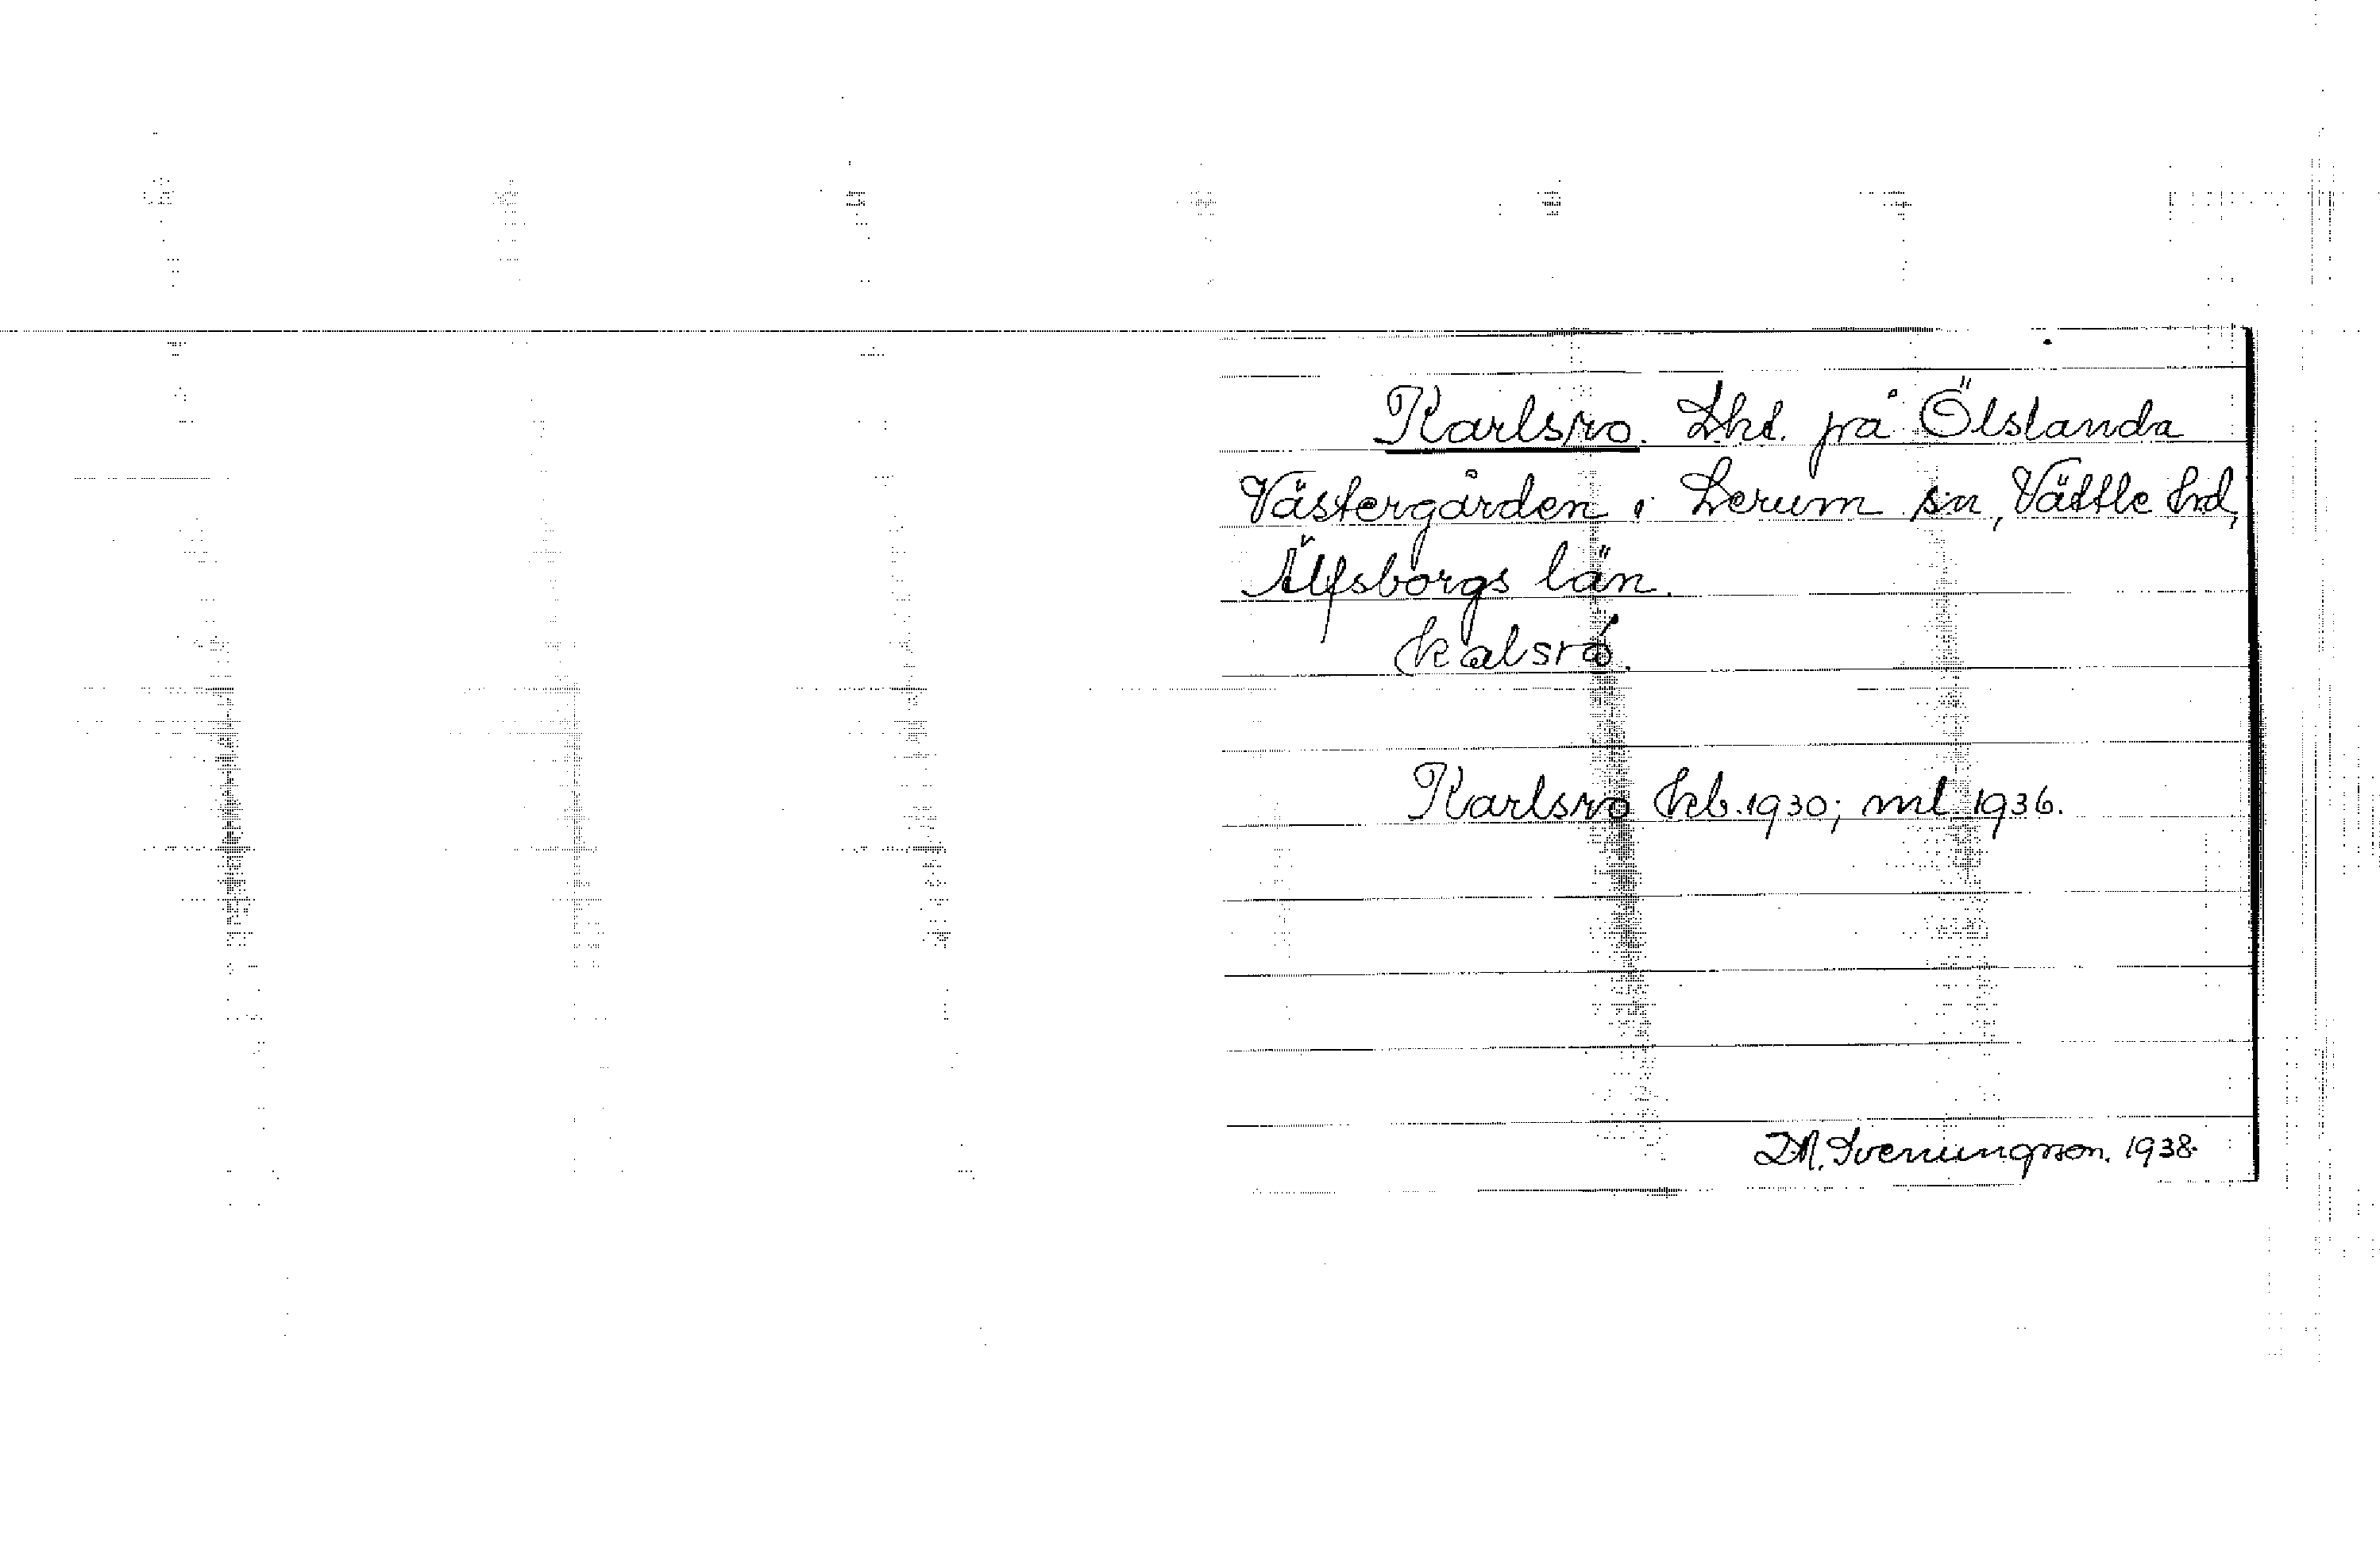 Karlsro. Lht. på Ölslanda
Västergården i Lerum sn, Vättle hd,
Älfsborgs län.
kalsrò.
Karlsro kb. 1930; ml 1936.
D.M. Svenungsson. 1938.